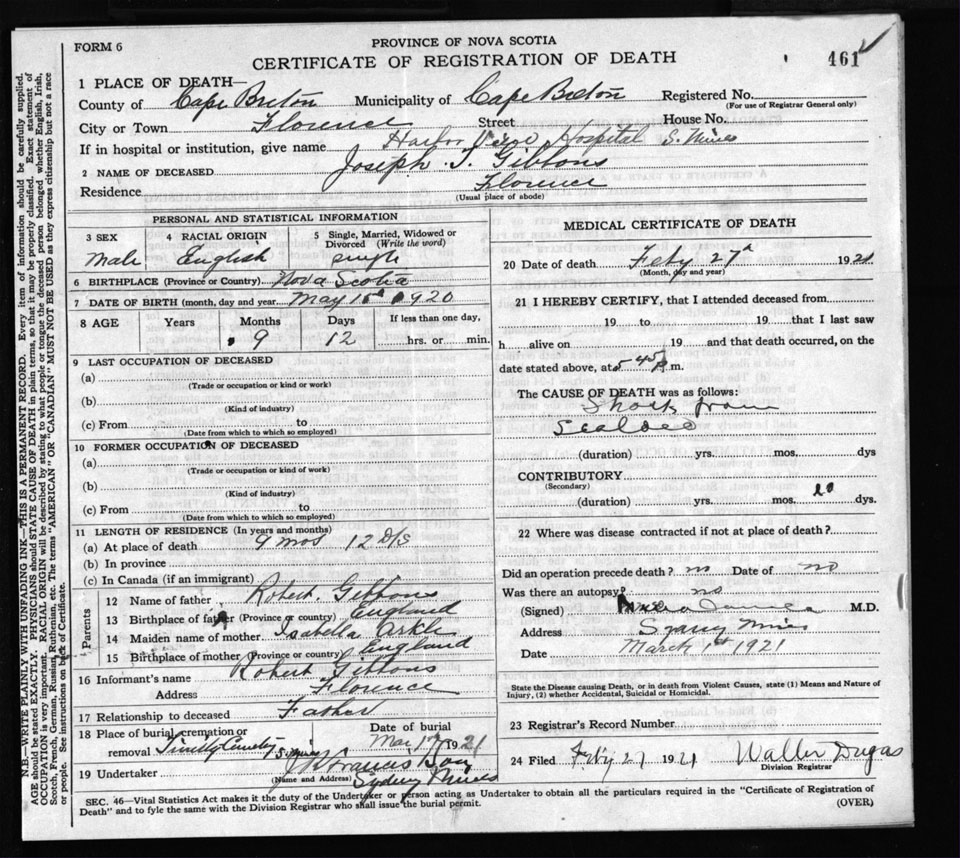 FORM 6
PROVINCE OF NOVA SCOTIA
CERTIFICATE OF REGISTRATION OF DEATH
461
1 PLACE OF DEATH—
County of Cape Breton Municipality of Cape Breton Registered No.
(For use of Registrar General only)
City or Town Florence Street House No.
If in hospital or institution, give name Harbor View Hospital S. Mines
2 NAME OF DECEASED Joseph. T. Gibbons
Residence Florence
(Usual place of abode)
PERSONAL AND STATISTICAL INFORMATION
3 SEX 4 RACIAL ORIGIN 5 Single, Married, Widowed or Divorced (Write the word)
Male English single
6 BIRTHPLACE (Province or Country) Nova Scotia
7 DATE OF BIRTH (month, day and year) May 15 1920
8 AGE Years Months Days If less than one day,
9 12 hrs. or min.
9 LAST OCCUPATION OF DECEASED
(a)
(Trade or occupation or kind or work)
(b)
(Kind of industry)
(c) From to
(Date from which to which so employed)
10 FORMER OCCUPATION OF DECEASED
(a)
(Trade or occupation or kind of work)
(b)
(Kind of industry)
(c) From to
(Date from which to which so employed)
11 LENGTH OF RESIDENCE (In years and months)
(a) At place of death 9 mos 12 D/s
(b) In province
(c) In Canada (if an immigrant)
Parents
12 Name of father Robert. Gibbons
13 Birthplace of father (Province or country) England
14 Maiden name of mother Isabella Arkle
15 Birthplace of mother (Province or country) England
16 Informant's name Robert Gibbons
Address Florence
17 Relationship to deceased Father
18 Place of burial, cremation or Date of burial
removal Trinity Cemetry Mar 1 1921
19 Undertaker J. W. Francis
(Name and Address) Sydney Mines
MEDICAL CERTIFICATE OF DEATH
20 Date of death Feby 27th 1921
(Month, day and year)
21 I HEREBY CERTIFY, that I attended deceased from
19 to 19 that I last saw
h alive on 19 and that death occurred, on the
date stated above, at 5 45 P m.
The CAUSE OF DEATH was as follows:
Shock from
Scalded
(duration) yrs. mos. dys
CONTRIBUTORY
(Secondary)
(duration) yrs. mos. dys.
22 Where was disease contracted if not at place of death?
Did an operation precede death? no Date of no
Was there an autopsy? no
(Signed) M.D.
Address Sydney Mines
Date March 1st 1921
State the Disease causing Death, or in death from Violent Causes, state (1) Means and Nature of Injury, (2) whether Accidental, Suicidal or Homicidal.
23 Registrar's Record Number
24 Filed Feby 27 1921 Walter Dugas
Division Registrar
SEC. 46—Vital Statistics Act makes it the duty of the Undertaker or person acting as Undertaker to obtain all the particulars required in the "Certificate of Registration of
Death" and to fyle the same with the Division Registrar who shall issue the burial permit. (OVER)
N.B.—WRITE PLAINLY WITH UNFADING INK—THIS IS A PERMANENT RECORD. Every item of information should be carefully supplied.
AGE should be stated EXACTLY. PHYSICIANS should STATE CAUSE OF DEATH in plain terms, so that it may be properly classified. Exact statement of
OCCUPATION is very important. RACIAL ORIGIN will be described by stating to what people or tongue the deceased person belonged whether English, Irish,
Scotch, French, German, Russian, Ruthenian, etc. The terms "AMERICAN" OR "CANADIAN" MUST NOT BE USED as they express citizenship but not a race
or people. See instructions on back of Certificate.